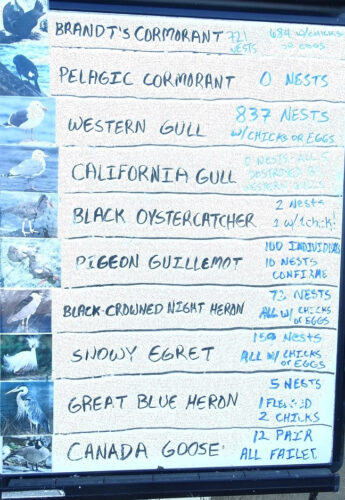 BRANDT'S CORMORANT 721 NESTS
684 w/CHICKS or EGGS
PELAGIC CORMORANT 0 NESTS
WESTERN GULL 837 NESTS
W/CHICKS OR EGGS
CALIFORNIA GULL 0 NESTS ALL 5
DESTROYED BY
WESTERN GULLS
BLACK OYSTERCATCHER 2 Nests
1 w/1chick!
PIGEON GUILLEMOT 100 INDIVIDUALS
10 NESTS
CONFIRME
BLACK-CROWNED NIGHT HERON NESTS
ALL W/ CHICKS
or EGGS
SNOWY EGRET Nests
ALL W/ CHICKS
or EGGS
GREAT BLUE HERON 5 NESTS
2 CHICKS
CANADA GOOSE 12 PAIR
ALL FAILED